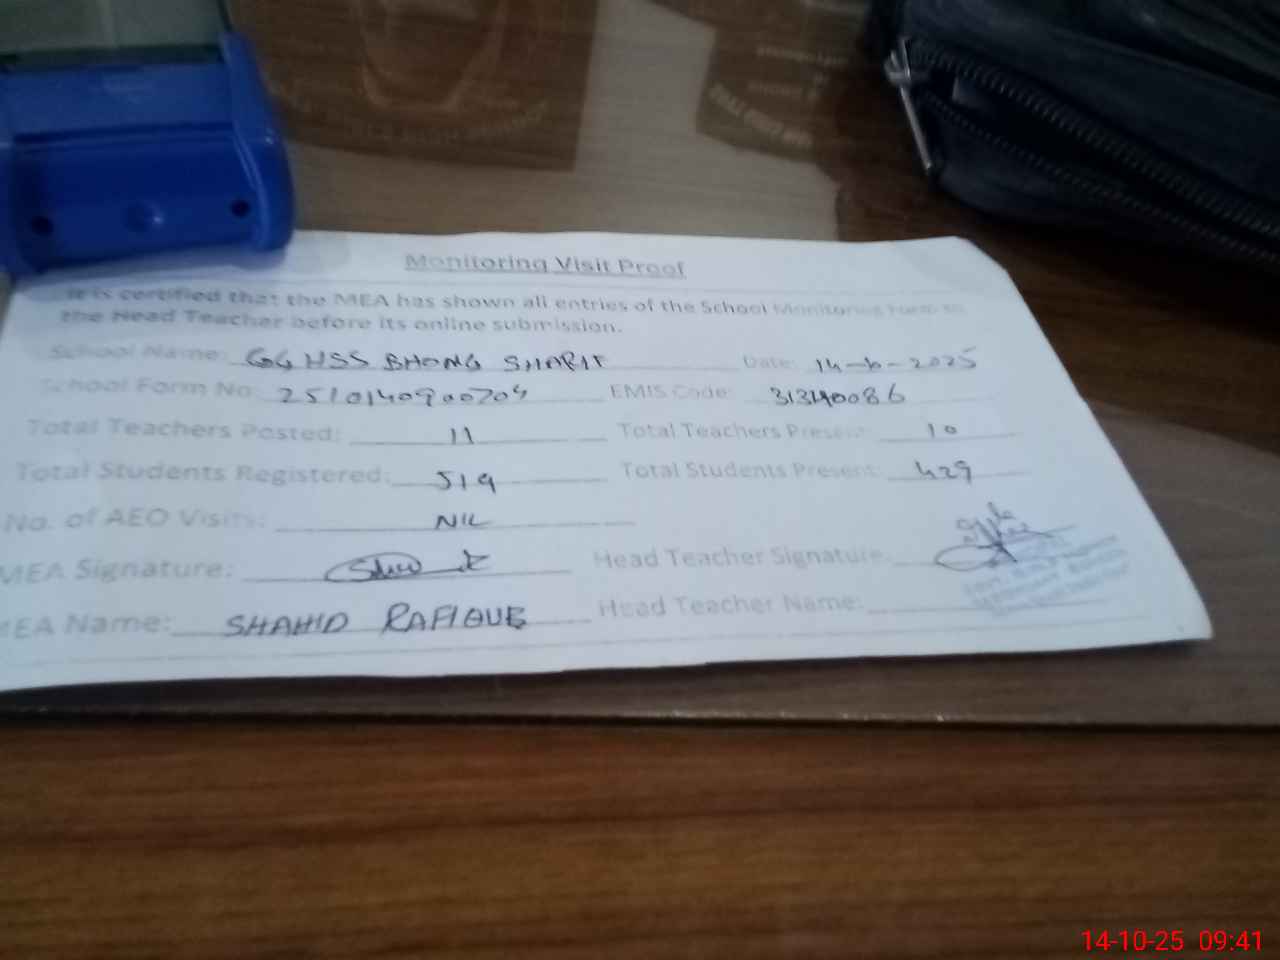 Monitoring Visit Proof
It is certified that the MEA has shown all entries of the School Monitoring Form to
the Head Teacher before its online submission.
School Name: GGHSS BHONG SHARIF Date: 14-10-2025
School Form No: 2510140900704 EMIS Code: 31340086
Total Teachers Posted: 11 Total Teachers Present: 10
Total Students Registered: 519 Total Students Present: 429
No. of AEO Visits: NIL
MEA Signature: Head Teacher Signature:
MEA Name: SHAHID RAFIQUE Head Teacher Name:
14-10-25 09:41